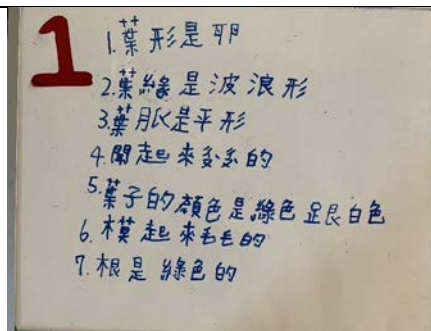 1
1.葉形是卵
2.葉緣是波浪形
3.葉脈是平形
4.聞起來多多的
5.葉子的顏色是綠色跟白色
6.模起來毛毛的
7.根是綠色的